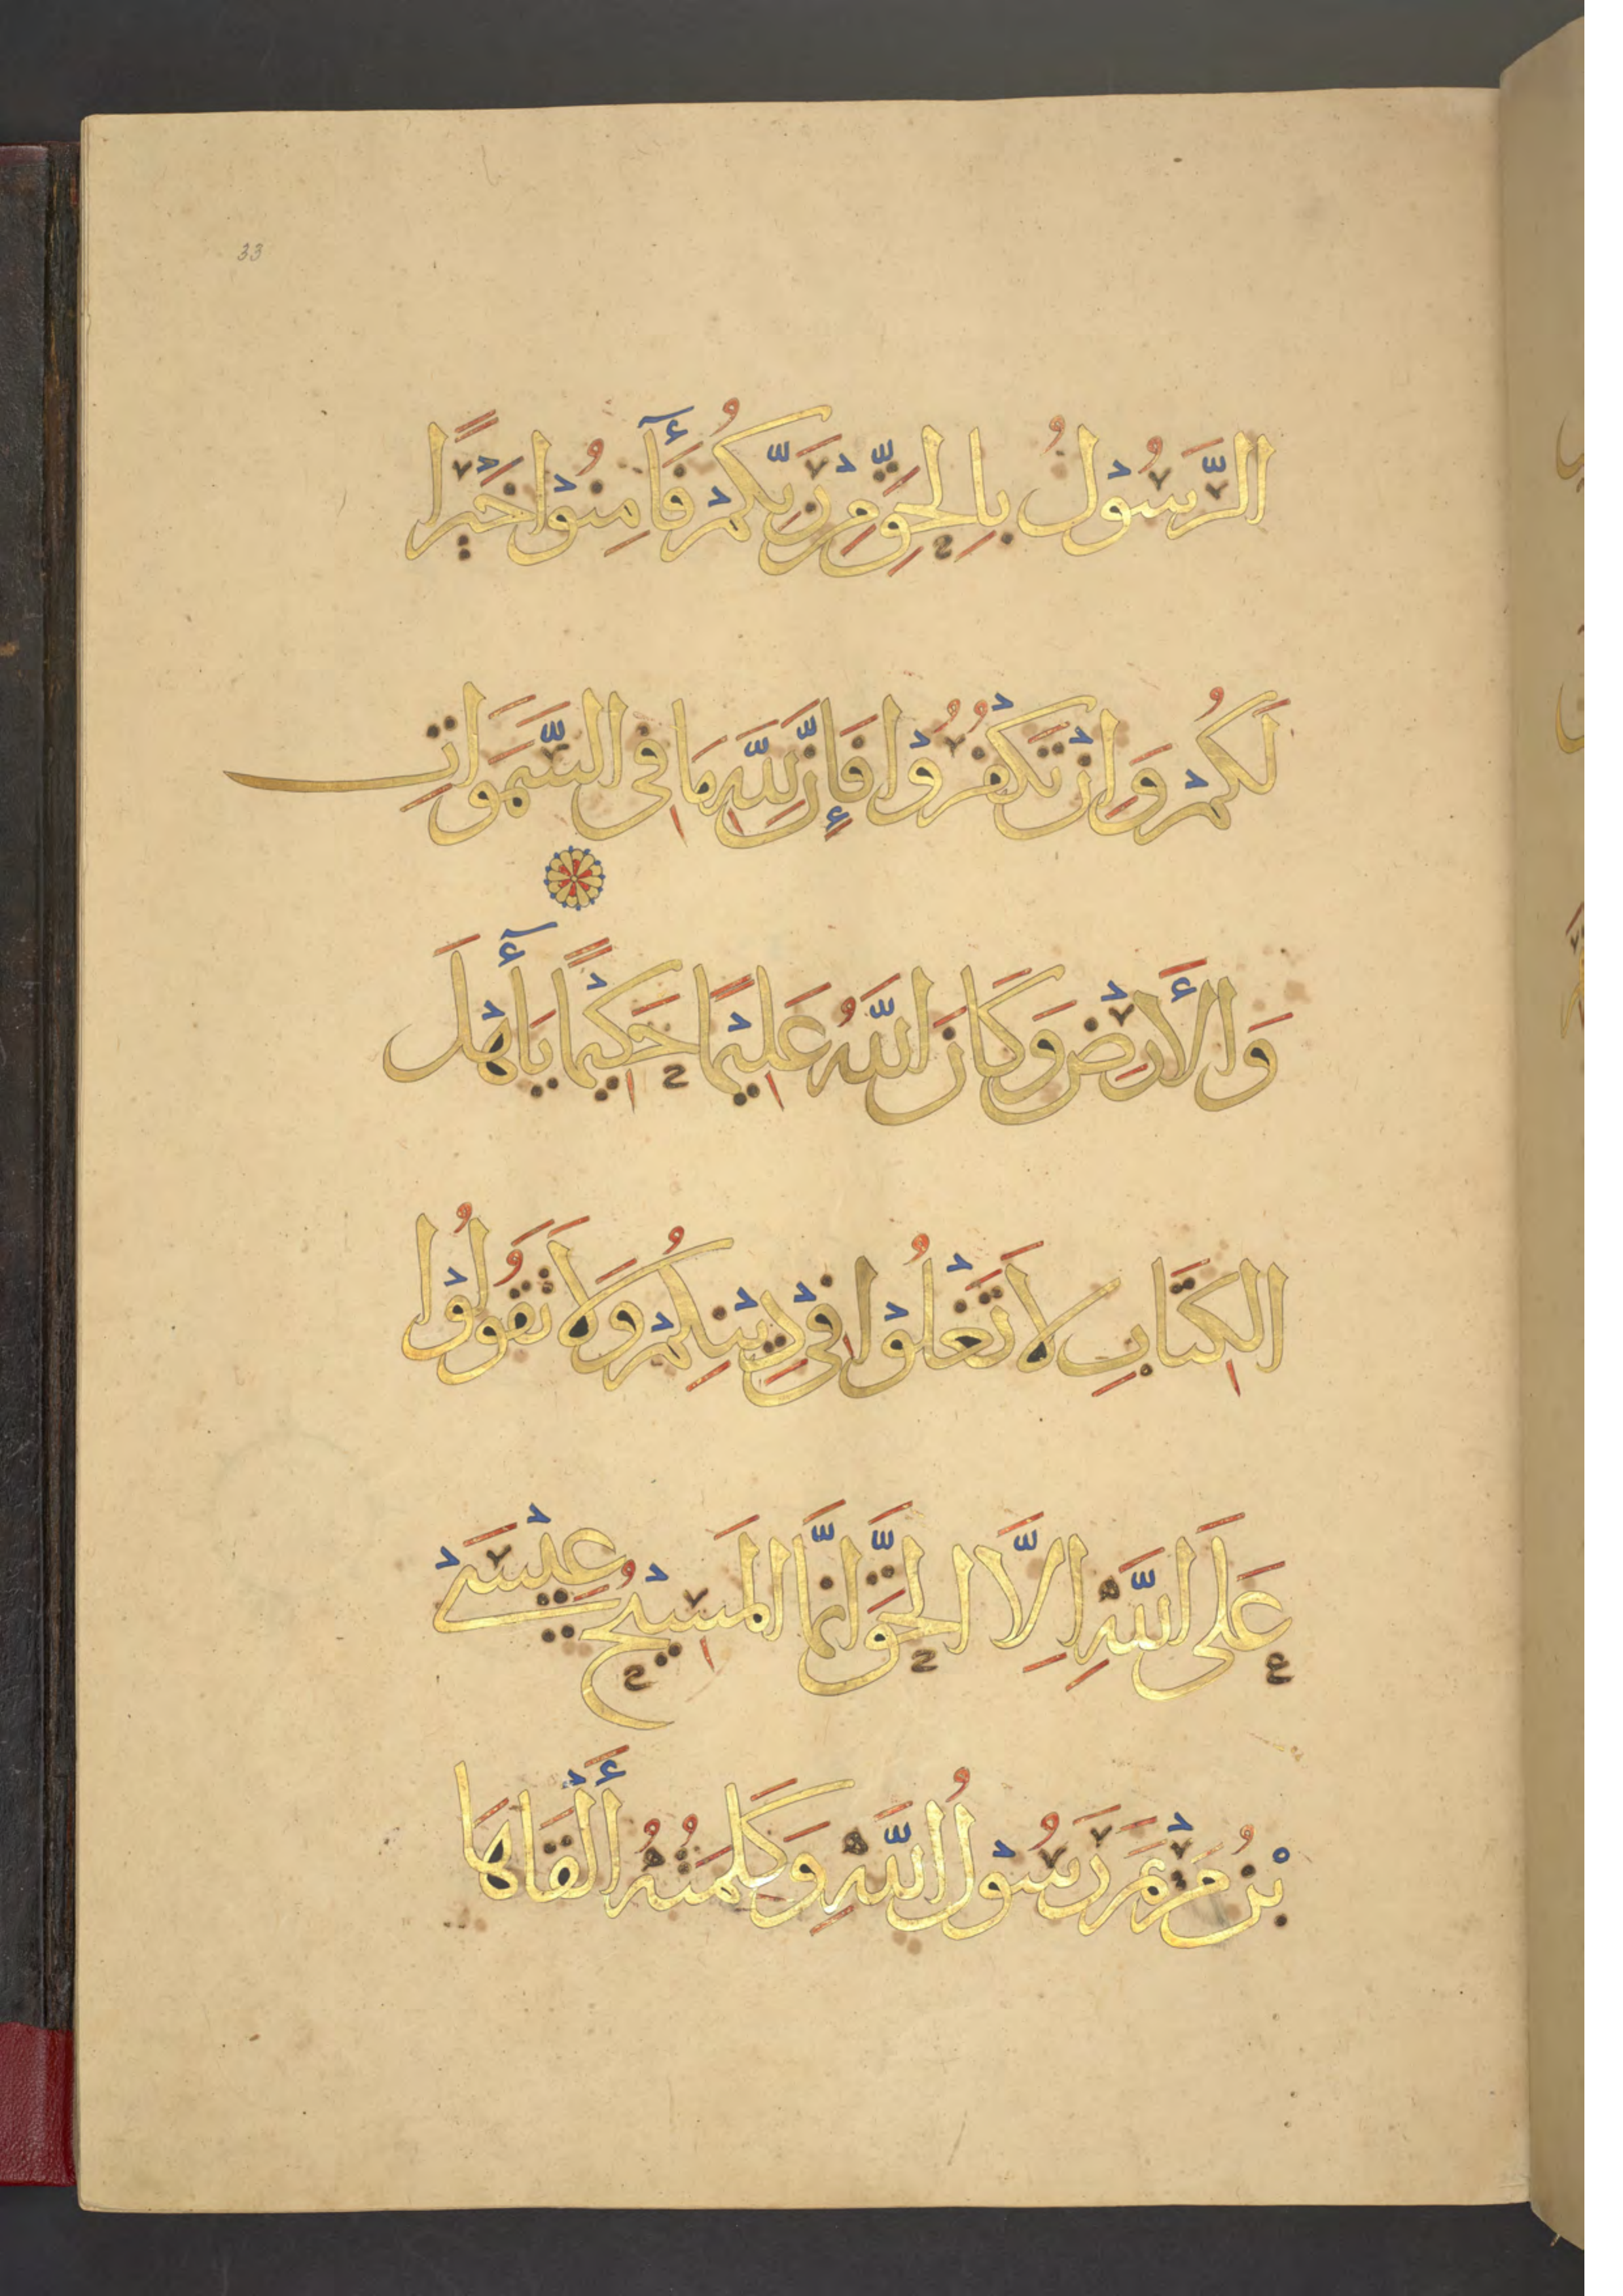 33
الرَّسُوْلُ بِالْحَقِّ مِنْ رَبِّكُمْ فَآمِنُوْا خَيْرًا
لَكُمْ وَاِنْ تَكْفُرُوْا فَإِنَّ لِلّٰهِ مَا فِى السَّمَوَاتِ
وَالْأَرْضِ وَكَانَ اللَّهُ عَلِيْمًا حَكِيْمًا يَا أَهْلَ
الكِتَابِ لَا تَغْلُوْا فِىْ دِيْنِكُمْ وَلَا تَقُوْلُوْا
عَلَى اللَّهِ اِلَّا الْحَقَّ اِنَّمَا الْمَسِيْحُ عِيْسَىْ
بْنُ مَرْيَمَ رَسُوْلُ اللَّهِ وَكَلِمَتُهُ أَلْقَاهَا